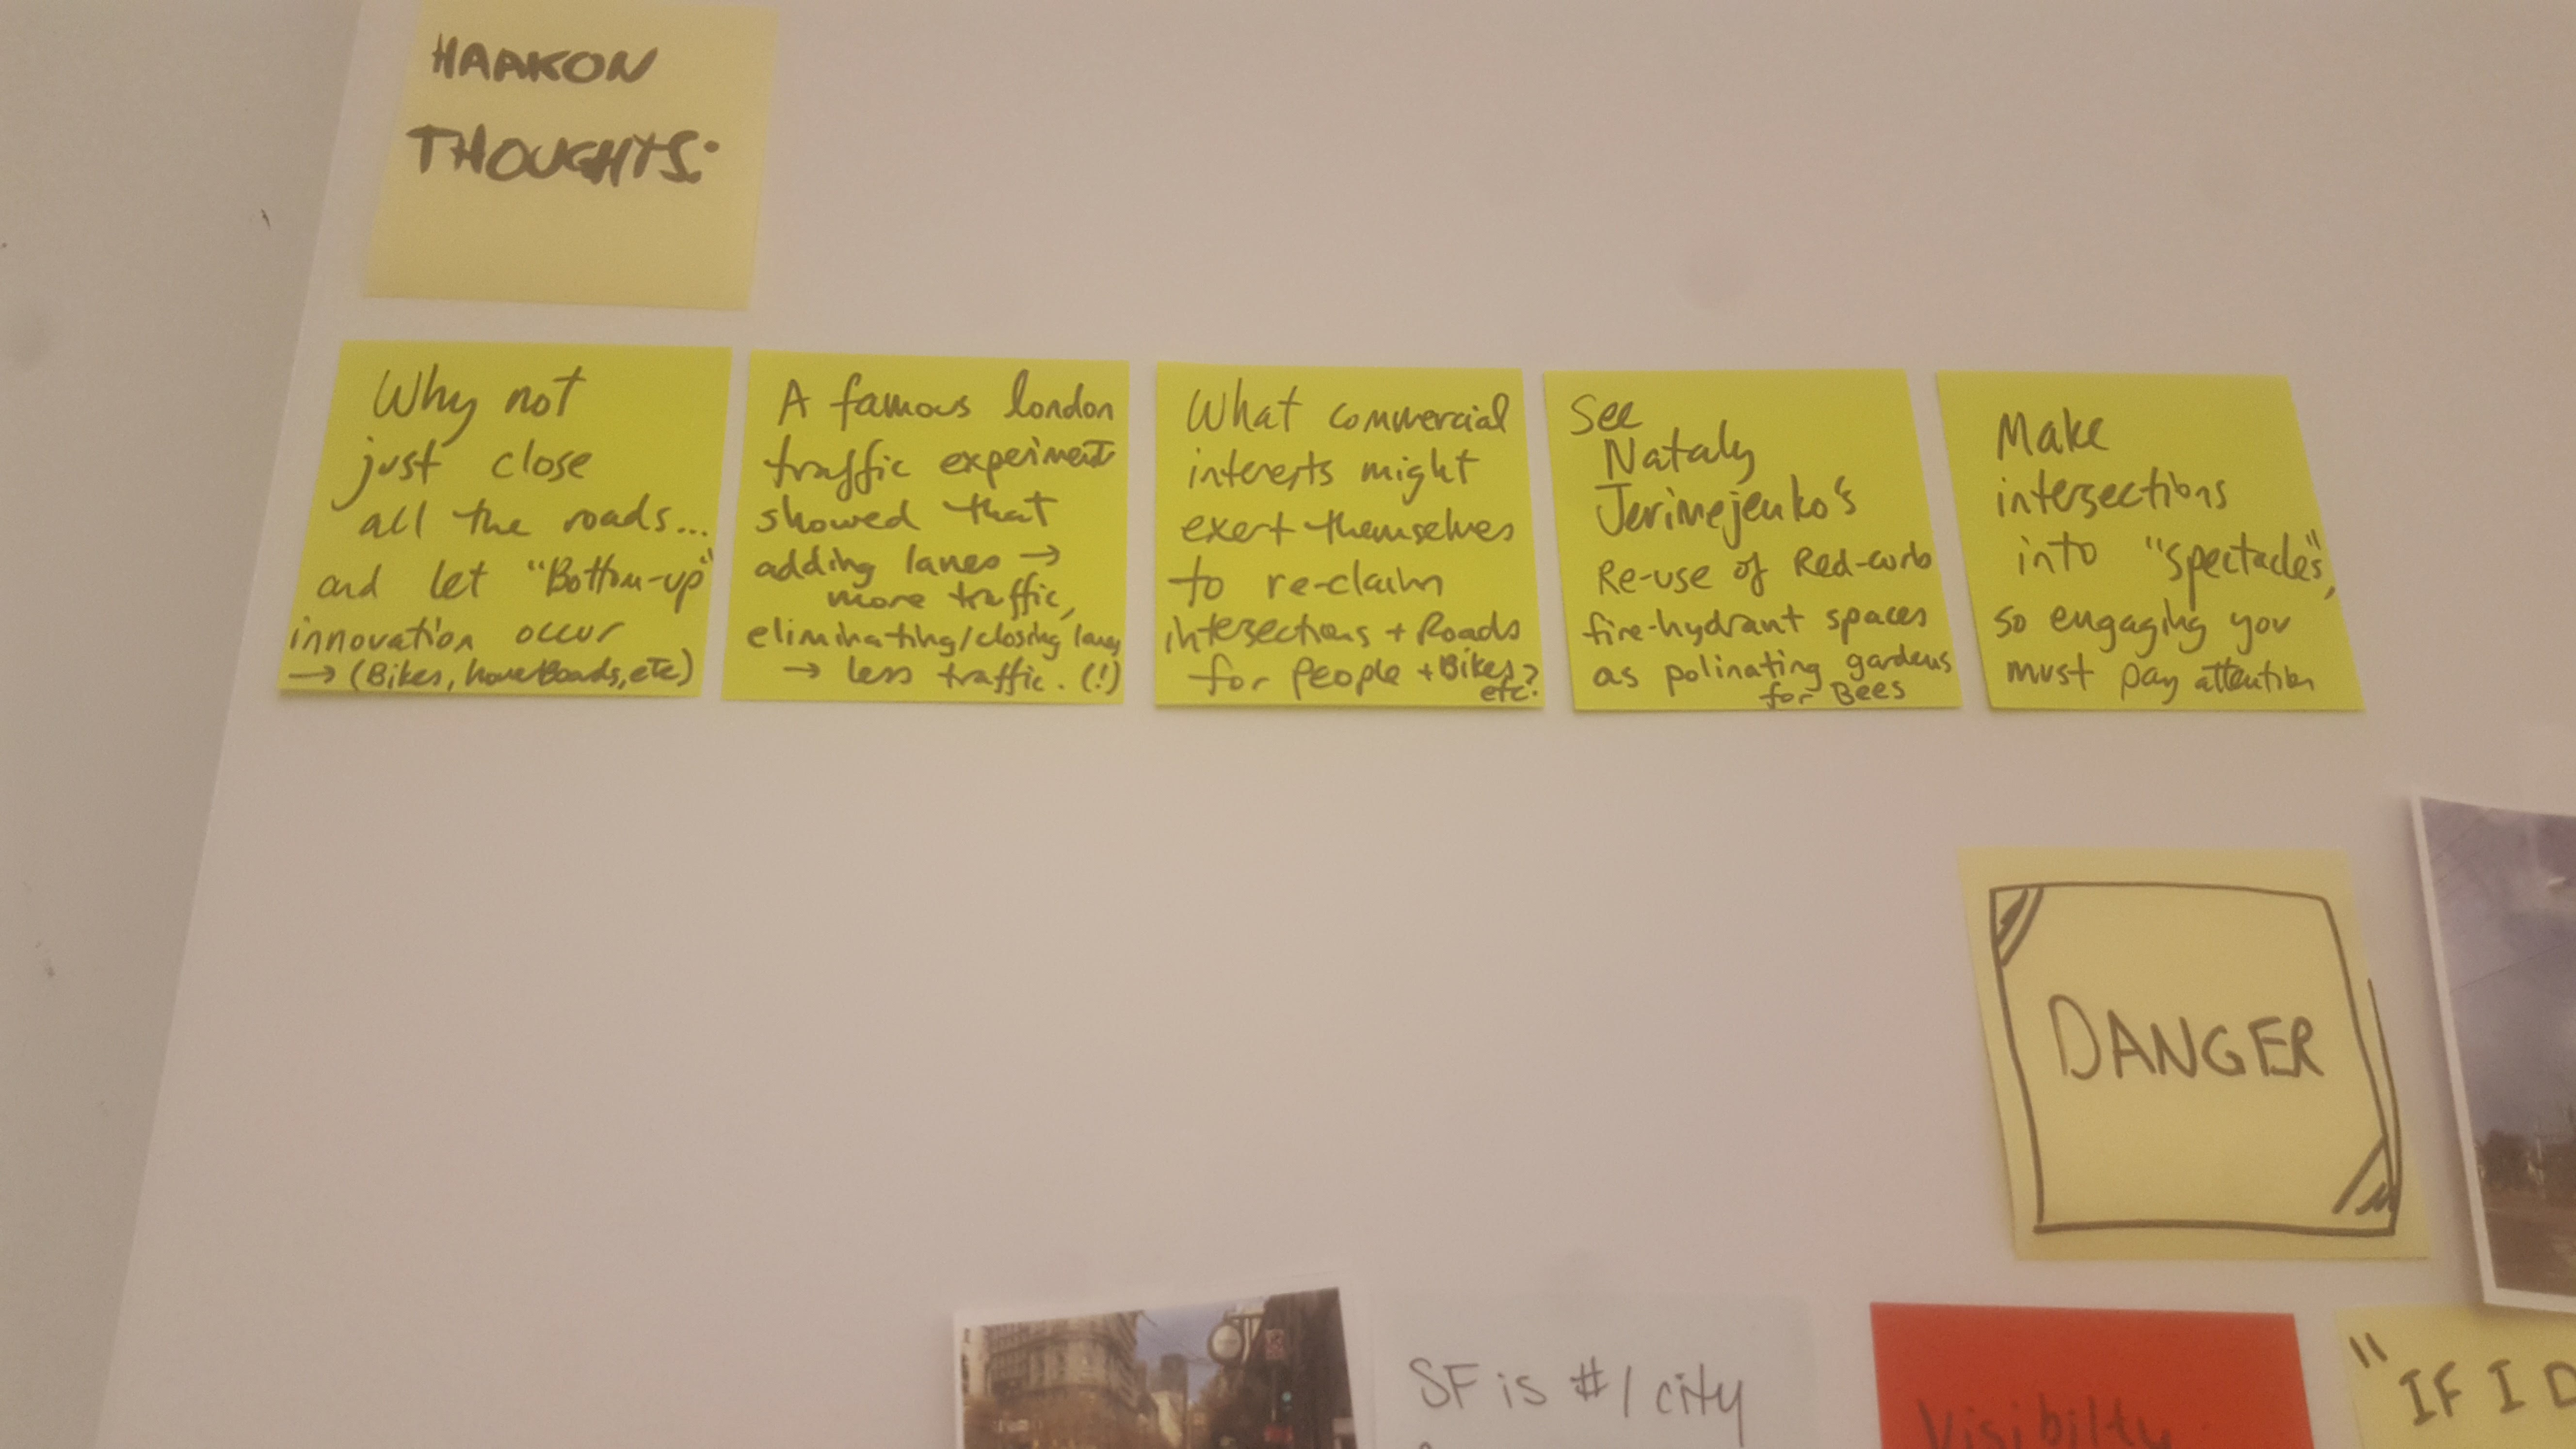 HAAKON
THOUGHTS:
Why not
just close
all the roads...
and let "Bottom-up"
innovation occur
→ (Bikes, hoverboards, etc)
A famous london
traffic experiment
showed that
adding lanes →
more traffic,
eliminating/closing lanes
→ less traffic. (!)
What commercial
interests might
exert themselves
to re-claim
intersections + Roads
for people + Bikes?
etc.
See
Nataly
Jerimejenko's
Re-use of Red-curb
fire-hydrant spaces
as polinating gardens
for Bees
Make
intersections
into "spectacles",
so engaging you
must pay attention
DANGER
SF is #1 city
Visibilty
"IF I D